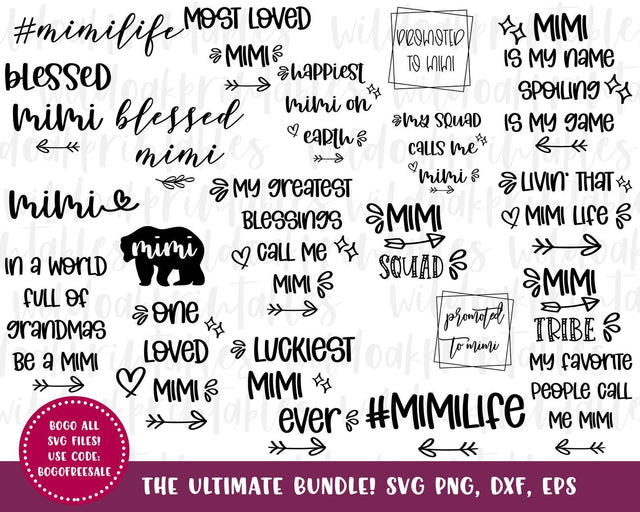 #mimilife
MOST LOVED
MIMI
BLESSED
MIMI
blessed
mimi
HAPPIEST
MIMI ON
EARTH
PROMOTED
TO MIMI
MY SQUAD
CALLS ME
mimi
MIMI
IS MY NAME
SPOILING
IS MY GAME
mimi
mimi
MY GREATEST
BLESSINGS
CALL ME
MIMI
MIMI
SQUAD
LIVIN' THAT
MIMI LIFE
IN A WORLD
FULL OF
GRANDMAS
BE A MIMI
ONE
LOVED
MIMI
LUCKIEST
MIMI
EVER
promoted
to mimi
MIMI
TRIBE
#MIMILIFE
MY FAVORITE
PEOPLE CALL
ME MIMI
BOGO ALL
SVG FILES!
USE CODE:
BOGOFREESALE
THE ULTIMATE BUNDLE! SVG PNG, DXF, EPS
wildoakprintables